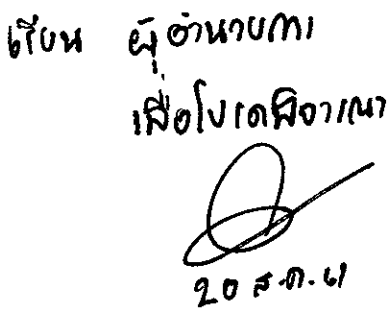 เรียน ผู้อำนวยการ
เพื่อโปรดพิจารณา
20 ส.ค. 61